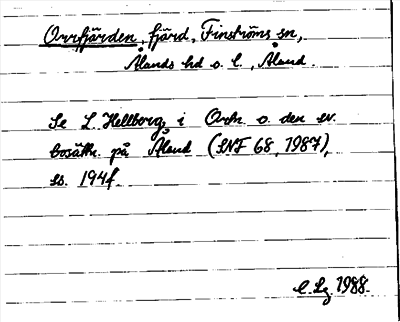 Orrfjärden, fjärd, Finströms sn,
Ålands hd o. l., Åland.
Se L. Hellberg i Ortn. o. den sv.
bosättn. på Åland (SNF 68, 1987),
ss. 194f.
1988.